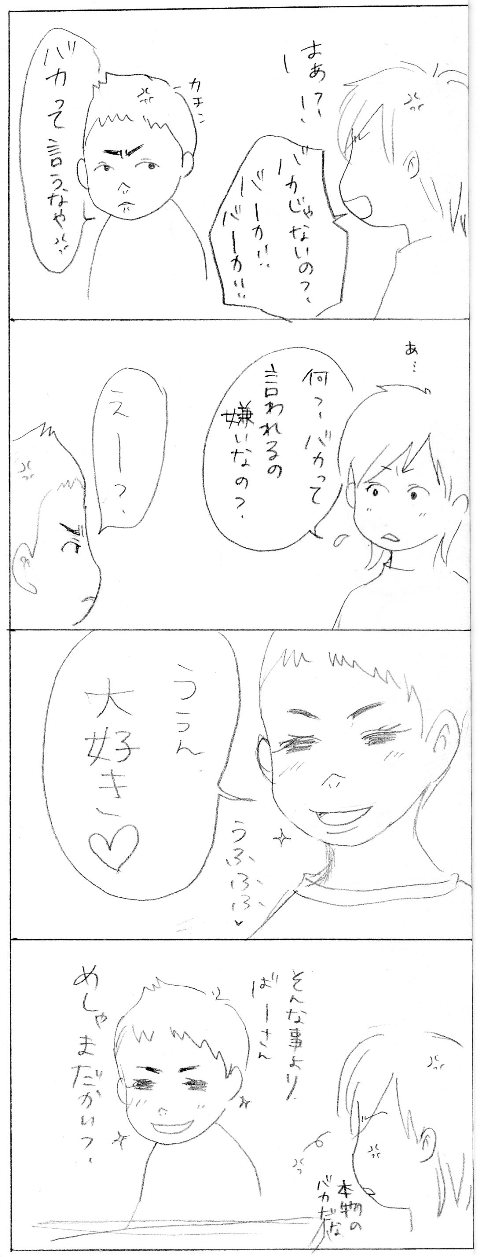 はあ？？
バカじゃないの？
バーカ!!
バーカ!!!
カチン
バカって言うなや
あ…
何？バカって
言われるの
嫌いなの？
えー？
ううん
大好き♡
うふふふ♥
そんな事より
ばーさん
めしゃまだかい？
本物の
バカだな